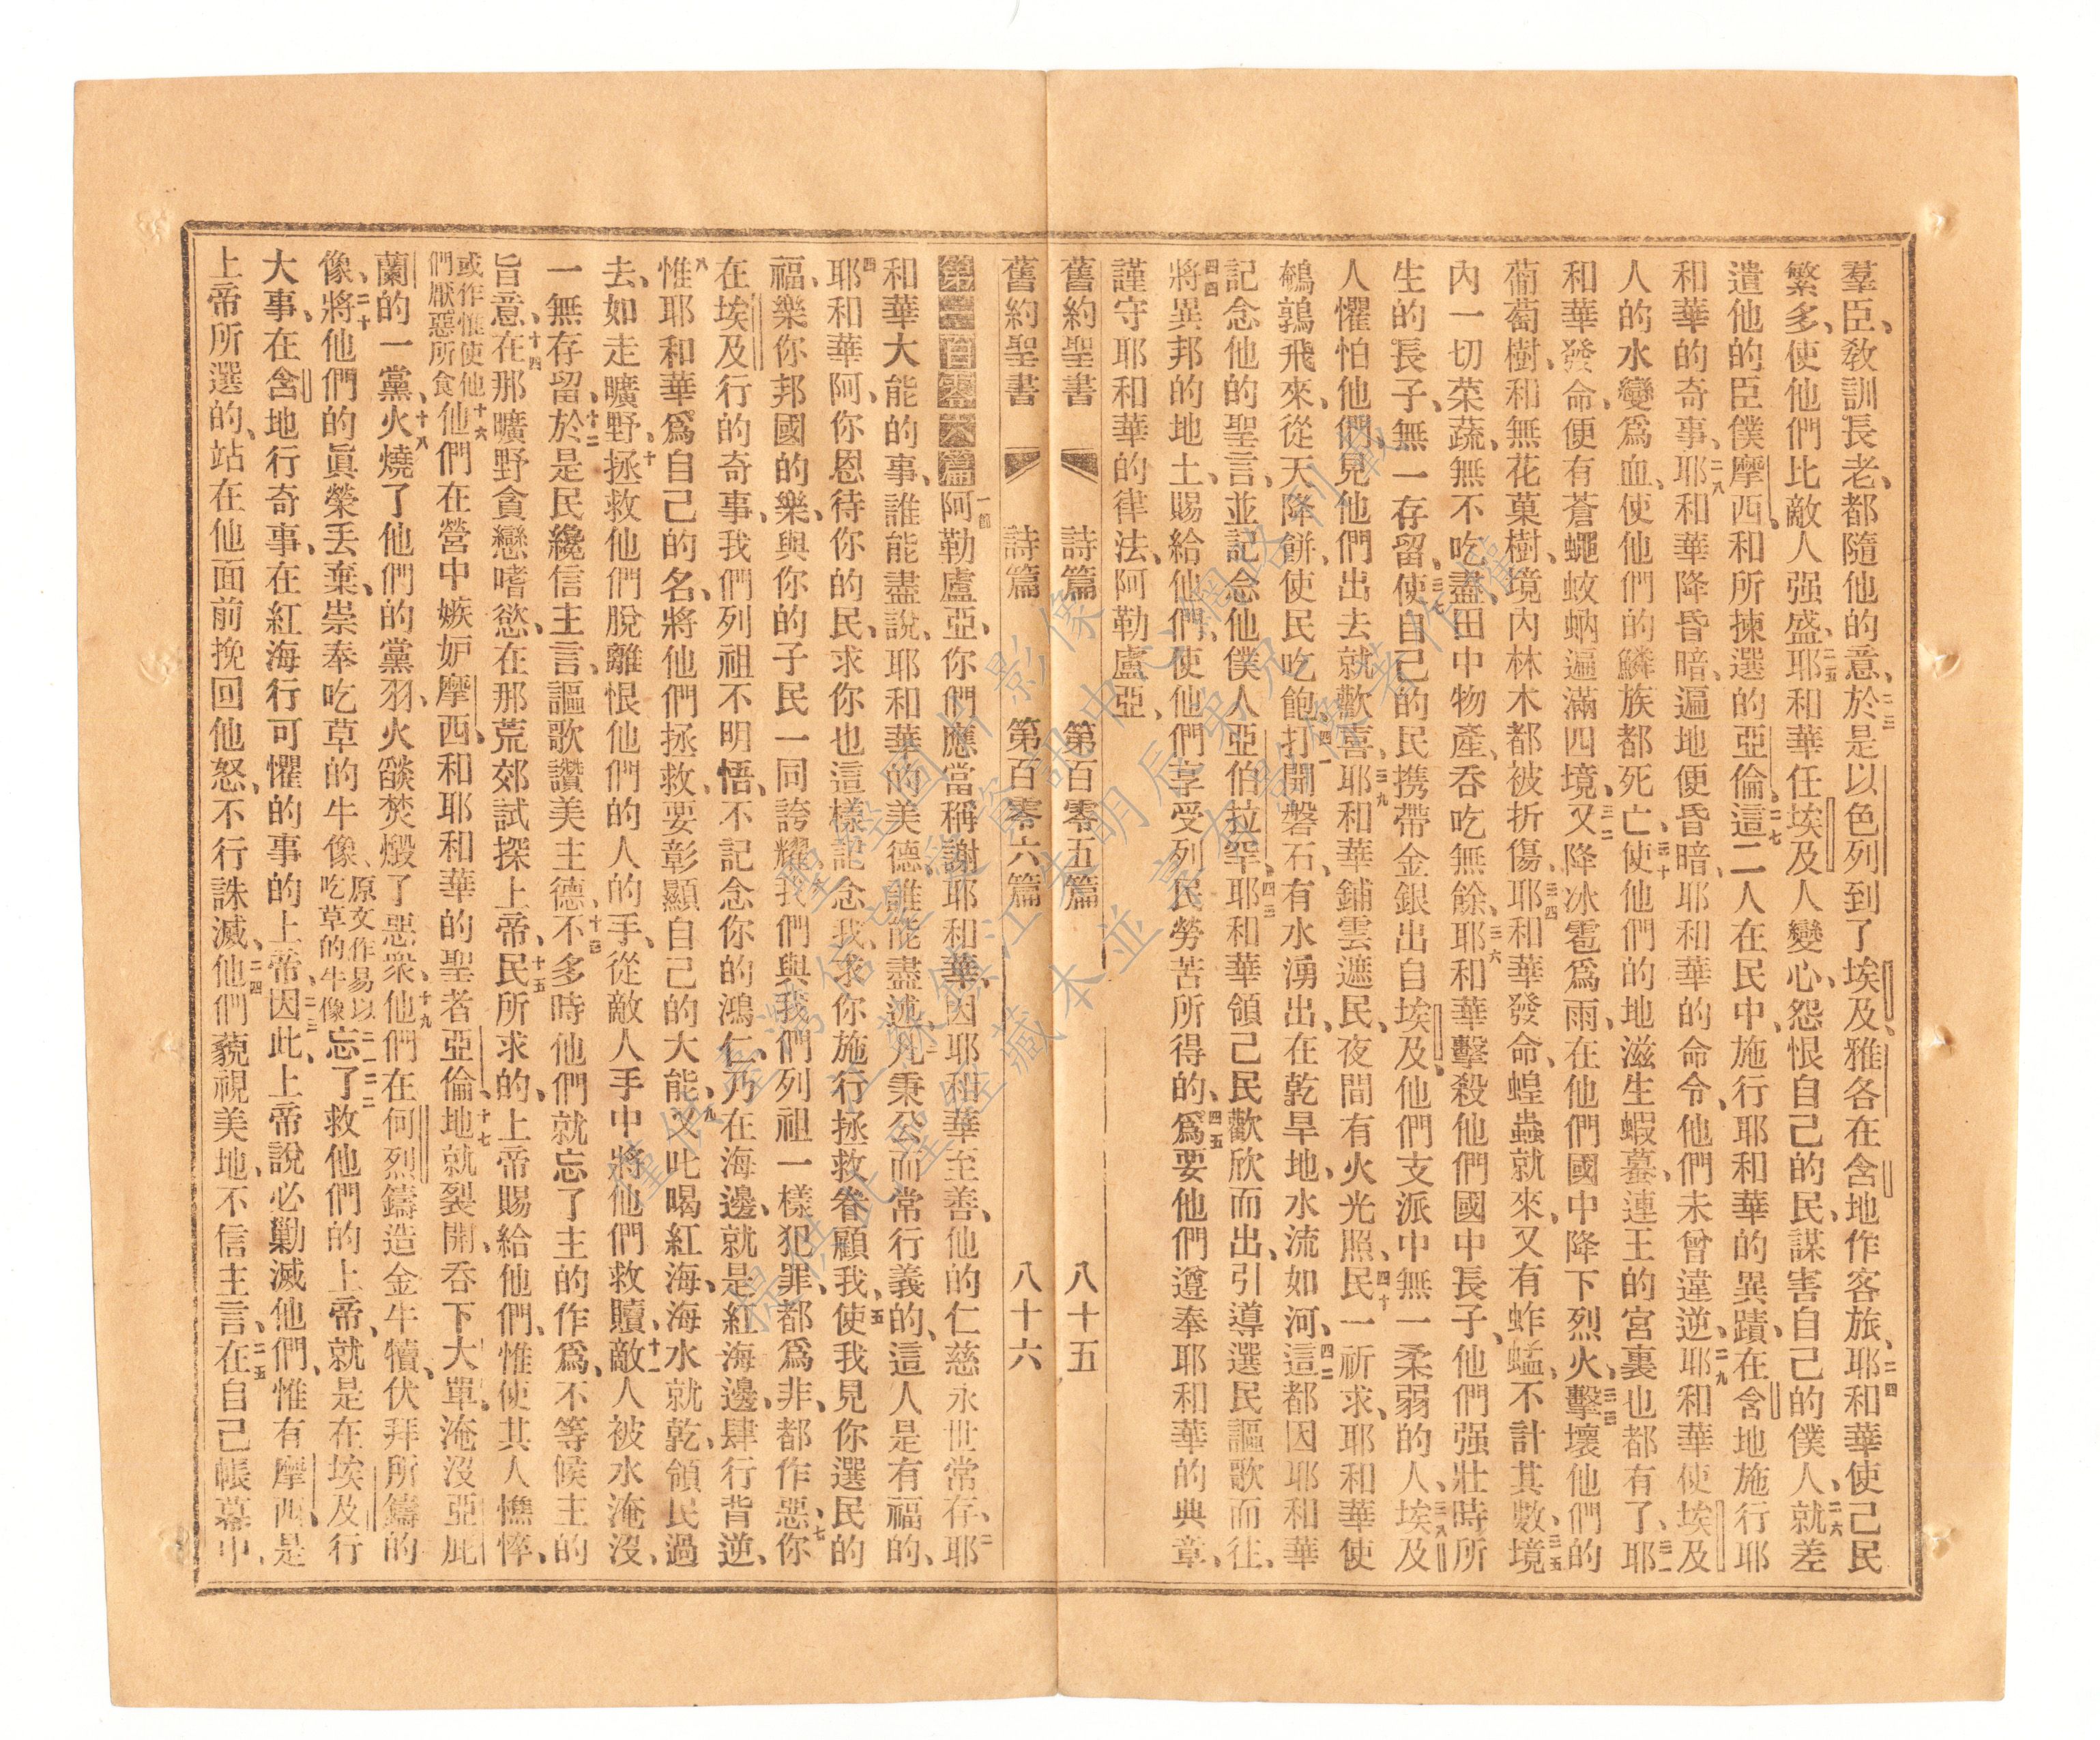 羣臣、敎訓長老、都隨他的意、二三於是以色列到了埃及、雅各在含地作客旅、二四耶和華使己民
繁多、使他們比敵人强盛、二五耶和華任埃及人變心、怨恨自己的民、謀害自己的僕人、二六就差
遣他的臣僕摩西、和所揀選的亞倫、二七這二人在民中、施行耶和華的異蹟、在含地施行耶
和華的奇事、二八耶和華降昏暗、遍地便昏暗、耶和華的命令、他們未曾違逆、二九耶和華使埃及
人的水變爲血、使他們的鱗族都死亡、三十使他們的地滋生蝦蟇、連王的宮裏也都有了、三一耶
和華發命、便有蒼蠅蚊蚋遍滿四境、三二又降冰雹爲雨、在他們國中降下烈火、三三擊壞他們的
葡萄樹、和無花菓樹、境內林木都被折傷、三四耶和華發命、蝗蟲就來、又有蚱蜢、不計其數、三五境
內一切菜蔬、無不吃盡、田中物產、吞吃無餘、三六耶和華擊殺他們國中長子、他們强壯時所
生的長子、無一存留、三七使自己的民携帶金銀出自埃及、他們支派中無一柔弱的人、三八埃及
人懼怕他們、見他們出去就歡喜、三九耶和華鋪雲遮民、夜間有火光照、四十民一祈求、耶和華使
鵪鶉飛來、從天降餅、使民吃飽、四一打開磐石、有水湧出、在乾旱地、水流如河、四二這都因耶和華
記念他的聖言、並記念他僕人亞伯拉罕、四三耶和華領己民歡欣而出、引導選民謳歌而往、
四四將異邦的地土、賜給他們、使他們享受列民勞苦所得的、四五爲要他們遵奉耶和華的典章、
謹守耶和華的律法、阿勒盧亞、
舊約聖書 詩篇 第百零五篇 八十五
舊約聖書 詩篇 第百零六篇 八十六
第一百零六篇 一節阿勒盧亞、你們應當稱謝耶和華、因耶和華至善、他的仁慈永世常存、二耶
和華大能的事、誰能盡說、耶和華的美德、誰能盡述、三凡秉公而常行義的、這人是有福的、
四耶和華阿、你恩待你的民、求你也這樣記念我、求你施行拯救眷顧我、五使我見你選民的
福、樂你邦國的樂、與你的子民一同誇耀、六我們與我們列祖一樣犯罪、都爲非、都作惡、七你
在埃及行的奇事、我們列祖不明悟、不記念你的鴻仁、乃在海邊、就是紅海邊、肆行背逆、
八惟耶和華爲自己的名、將他們拯救、要彰顯自己的大能、九又叱喝紅海、海水就乾、領民過
去、如走曠野、十拯救他們脫離恨他們的人的手、從敵人手中將他們救贖、十一敵人被水淹沒、
一無存留、十二於是民纔信主言、謳歌讚美主德、十三不多時他們就忘了主的作爲、不等候主的
旨意、十四在那曠野貪戀嗜慾、在那荒郊試探上帝、十五民所求的、上帝賜給他們、惟使其人憔悴、
或作惟使他們厭惡所食十六他們在營中嫉妒摩西、和耶和華的聖者亞倫、十七地就裂開、吞下大單、淹沒亞庇
蘭的一黨、十八火燒了他們的黨羽、火燄焚燬了惡衆、十九他們在何烈鑄造金牛犢、伏拜所鑄的
像、二十將他們的眞榮丟棄、崇奉吃草的牛像、原文作易以吃草的牛像二一忘了救他們的上帝、就是在埃及行
大事、二二在含地行奇事、在紅海行可懼的事的上帝、二三因此、上帝說必勦滅他們、惟有摩西、是
上帝所選的、站在他面前挽回他怒、不行誅滅、二四他們藐視美地、不信主言、二五在自己帳幕中、